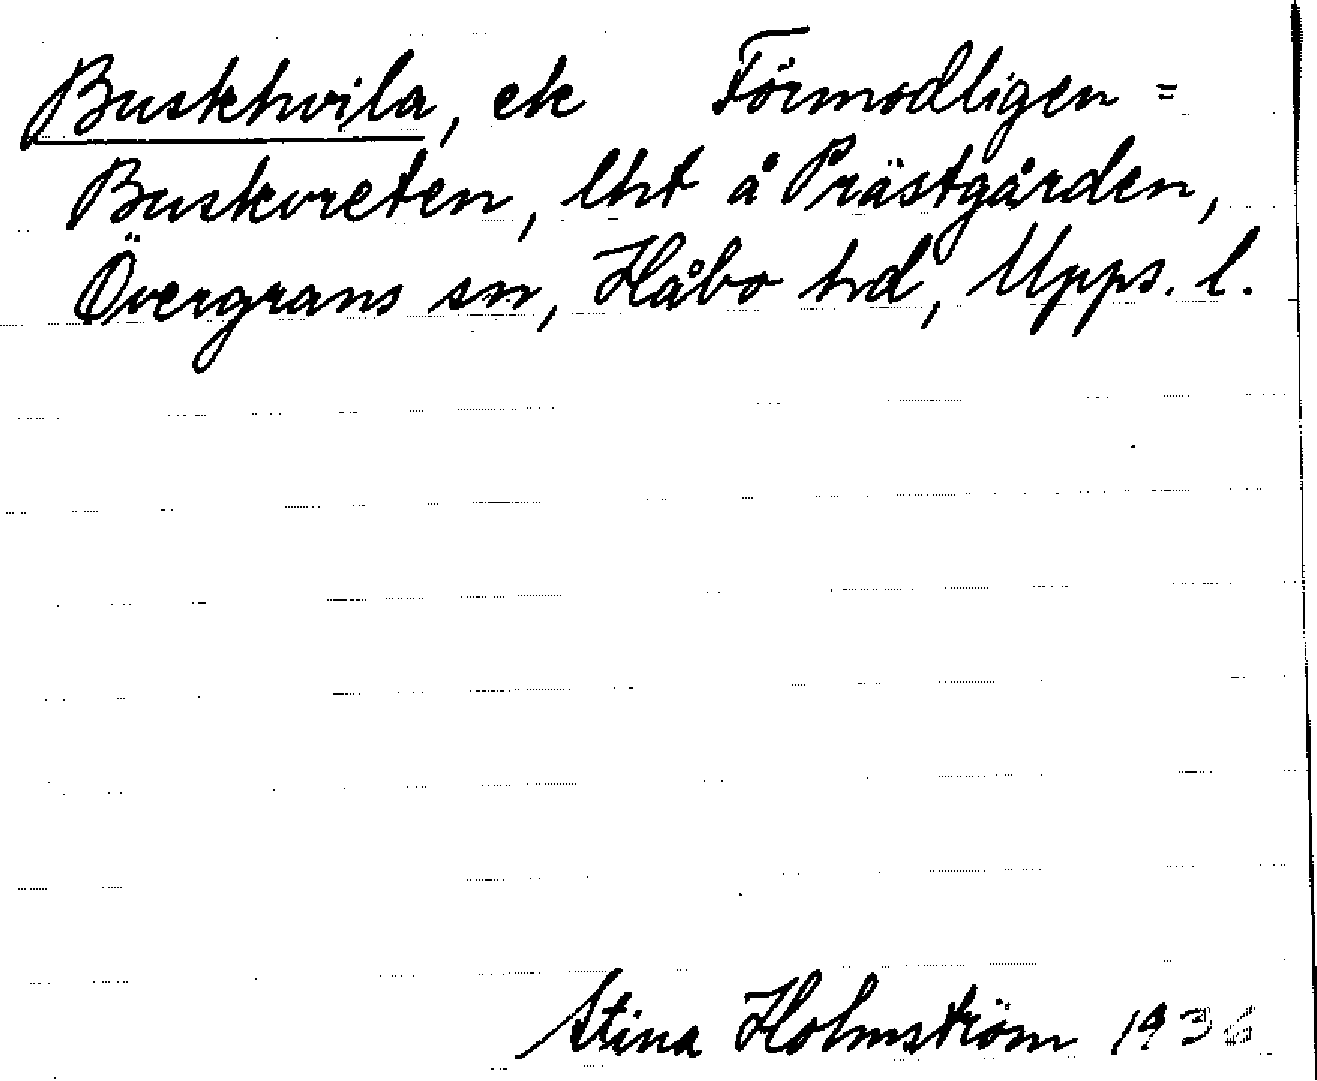 Buskhvila, ek Förmodligen =
Buskvreten, lht å Prästgården,
Övergrans sn, Håbo hd, Upps. l.
Stina Holmström 1936